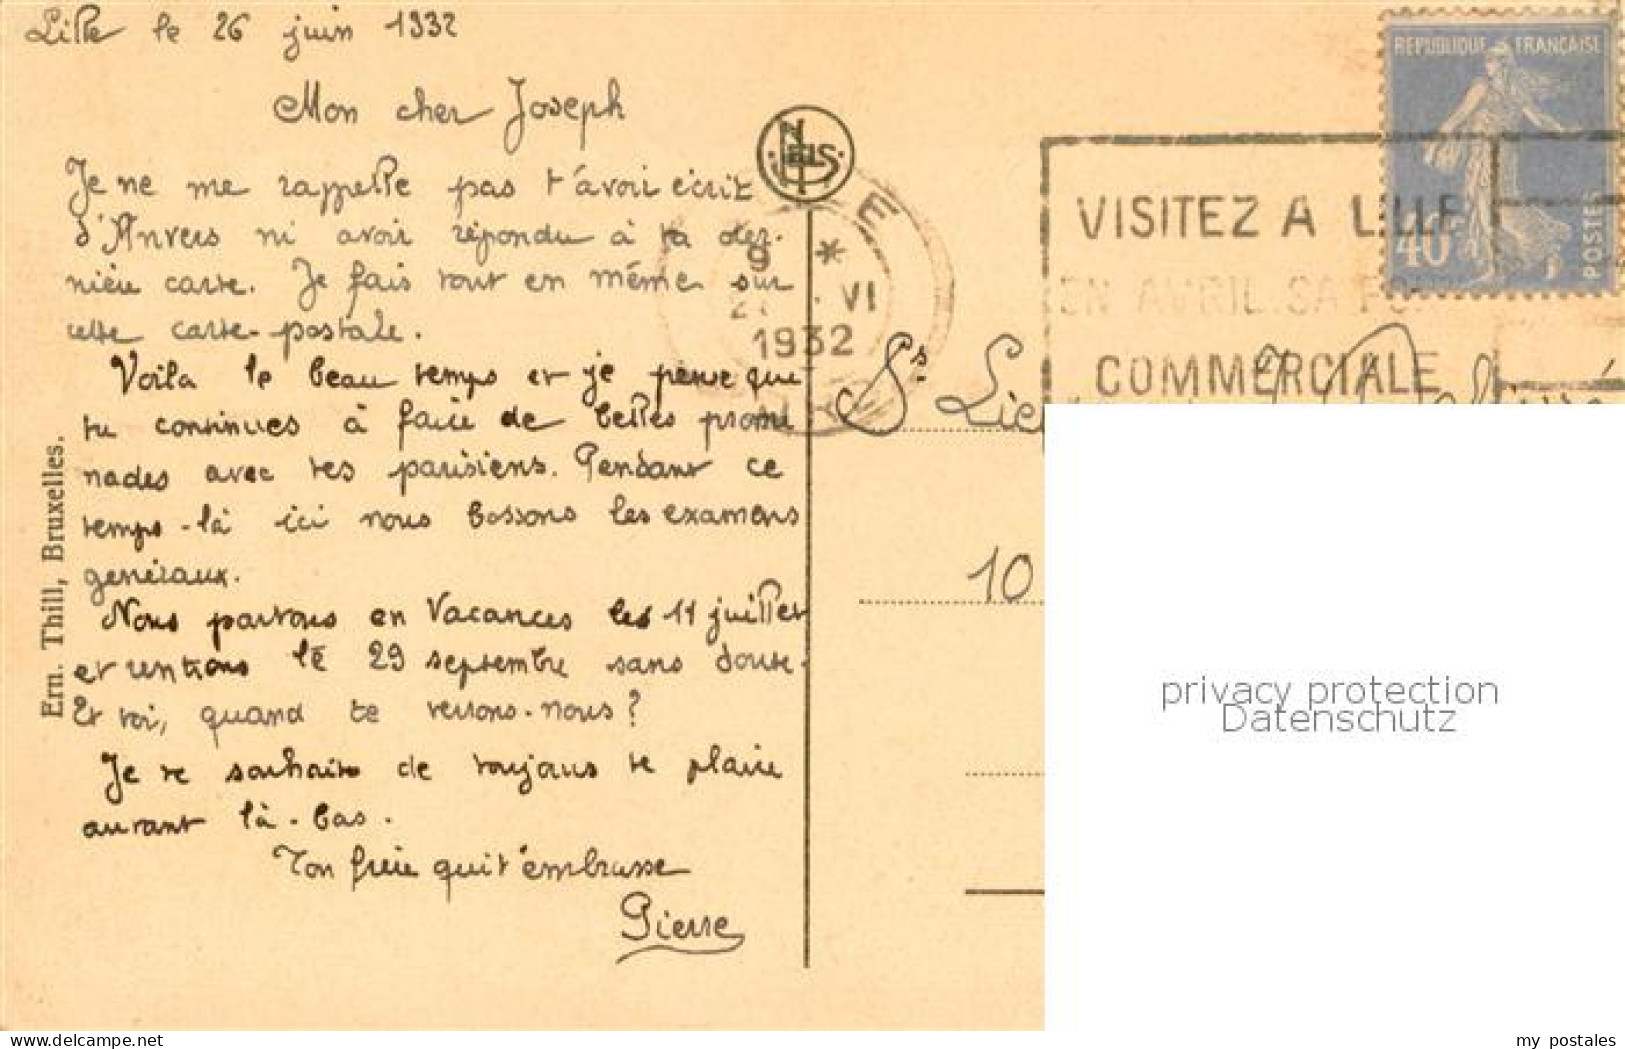 Lille le 26 juin 1932
Mon cher Joseph
Je ne me rappelle pas t'avoir écrit
d'Anvers ni avoir répondu à ta der-
nière carte. Je fais tout en même sur
cette carte-postale.
Voila le beau temps et je pense que
tu continues à faire de belles prome
nades avec tes parisiens. Pendant ce
temps-là ici nous bossons les examens
généraux.
Nous partons en Vacances les 11 juillet
et rentrons le 29 septembre sans doute.
Et toi, quand te verrons-nous?
Je te souhaite de toujours te plaire
autant là-bas.
Ton frère qui t'embrasse
Pierre
Ern. Thill, Bruxelles.
NELS
E
9 *
VI
1932
VISITEZ A LILLE
EN AVRIL SA
COMMERCIALE
REPUBLIQUE FRANÇAISE
40c
POSTES
10
privacy protection
Datenschutz
www.delcampe.net
my postales